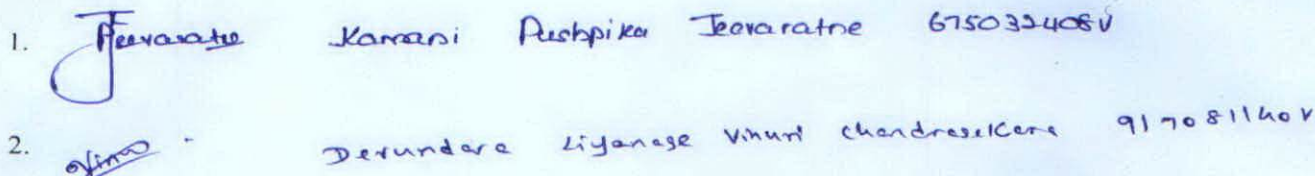 1. Jeevaratne Kamani Pushpika Jeevaratne 675032408V
2. Derundara Liyanage Vinuri Chandrasekara 917081140V